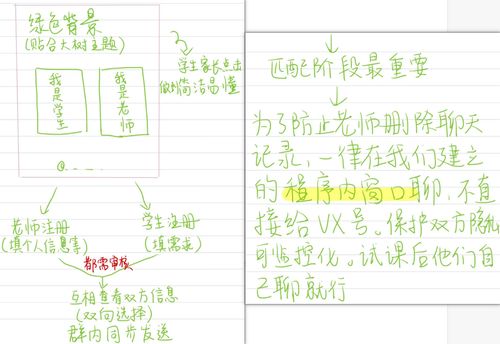 绿色背景
(贴合大树主题)
我是学生
我是老师
学生家长点击
做到简洁易懂
@.....
老师注册
(填个人信息等)
学生注册
(填需求)
都需审核
互相查看双方信息
(双向选择)
群内同步发送
匹配阶段最重要
为了防止老师删除聊天
记录，一律在我们建立
的程序内窗口聊，不直
接给VX号。保护双方隐私
可监控化。试课后他们自
己聊就行